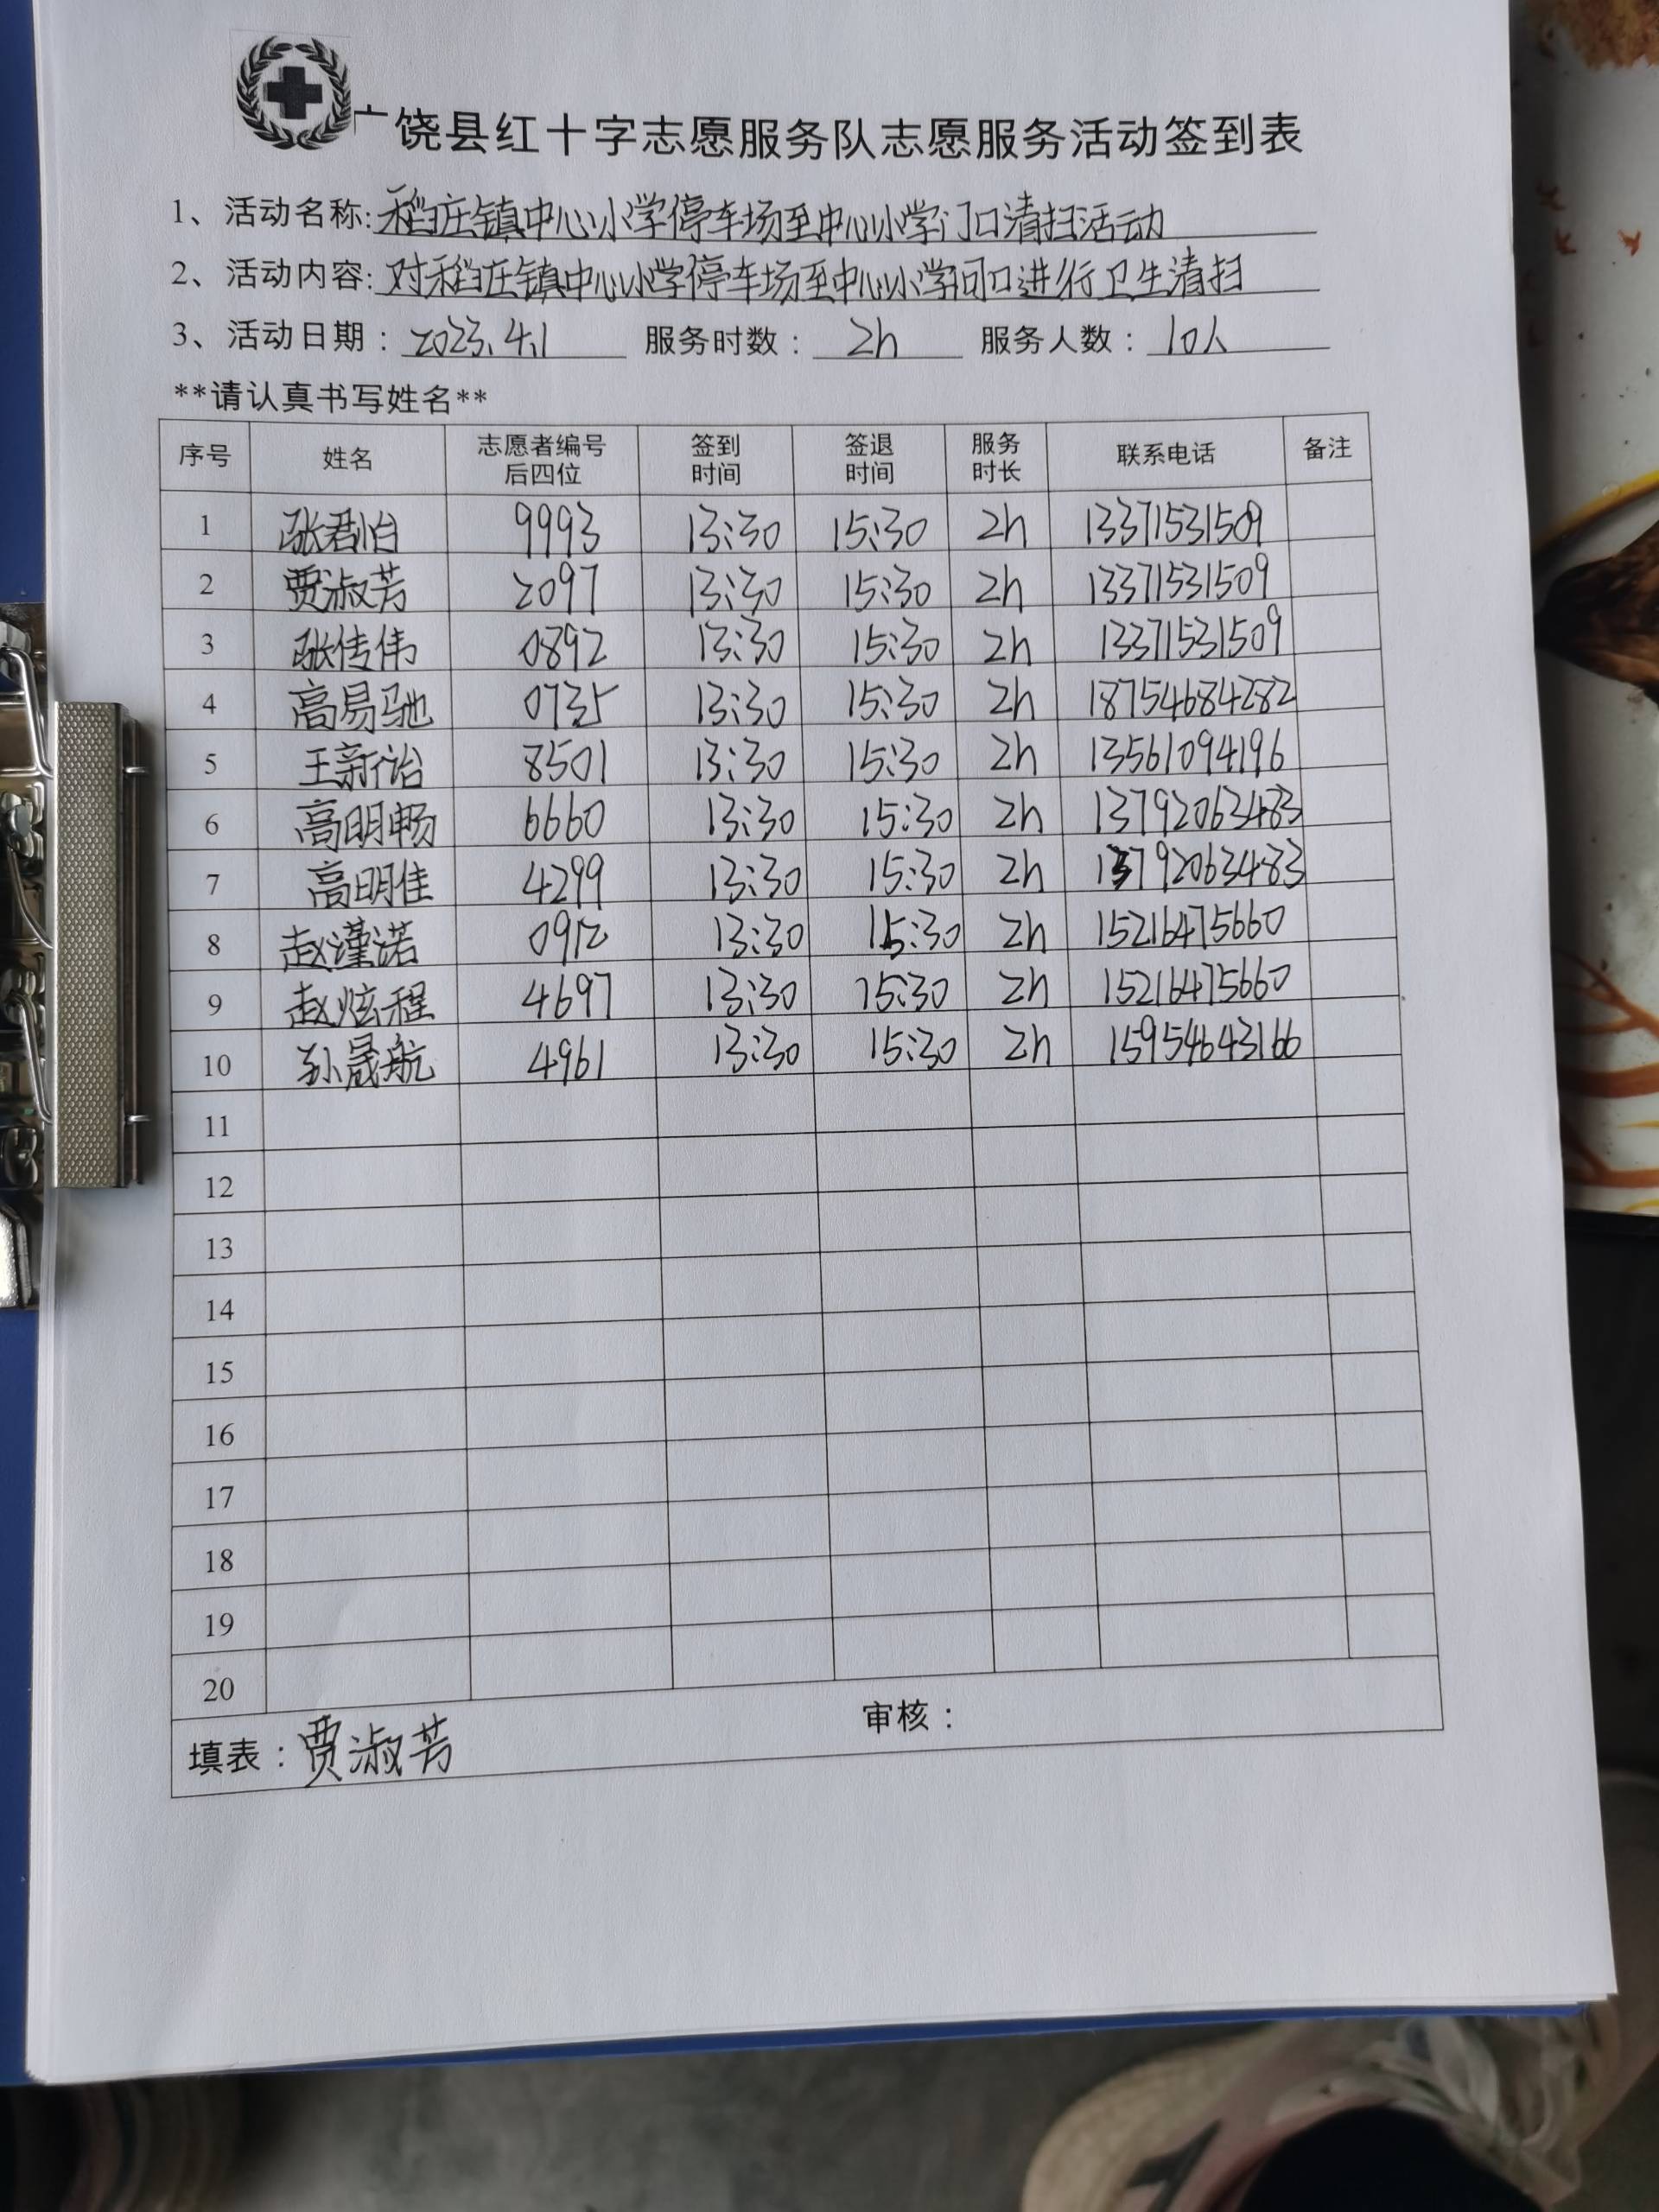 广饶县红十字志愿服务队志愿服务活动签到表
1、活动名称:稻庄镇中心小学停车场至中心小学门口清扫活动
2、活动内容:对稻庄镇中心小学停车场至中心小学门口进行卫生清扫
3、活动日期：2023.4.1 服务时数：2h 服务人数：10人
**请认真书写姓名**
序号 姓名 志愿者编号后四位 签到时间 签退时间 服务时长 联系电话 备注
1 张君怡 9993 13:30 15:30 2h 13371531509
2 贾淑芳 2097 13:30 15:30 2h 13371531509
3 张传伟 0892 13:30 15:30 2h 13371531509
4 高易驰 0735 13:30 15:30 2h 18754684282
5 王新诒 8501 13:30 15:30 2h 13561094196
6 高明畅 6660 13:30 15:30 2h 13792063483
7 高明佳 4299 13:30 15:30 2h 13792063483
8 赵瑾诺 0912 13:30 15:30 2h 15216475660
9 赵炫程 4697 13:30 15:30 2h 15216475660
10 孙晟航 4961 13:30 15:30 2h 15954643166
11
12
13
14
15
16
17
18
19
20
填表：贾淑芳 审核：